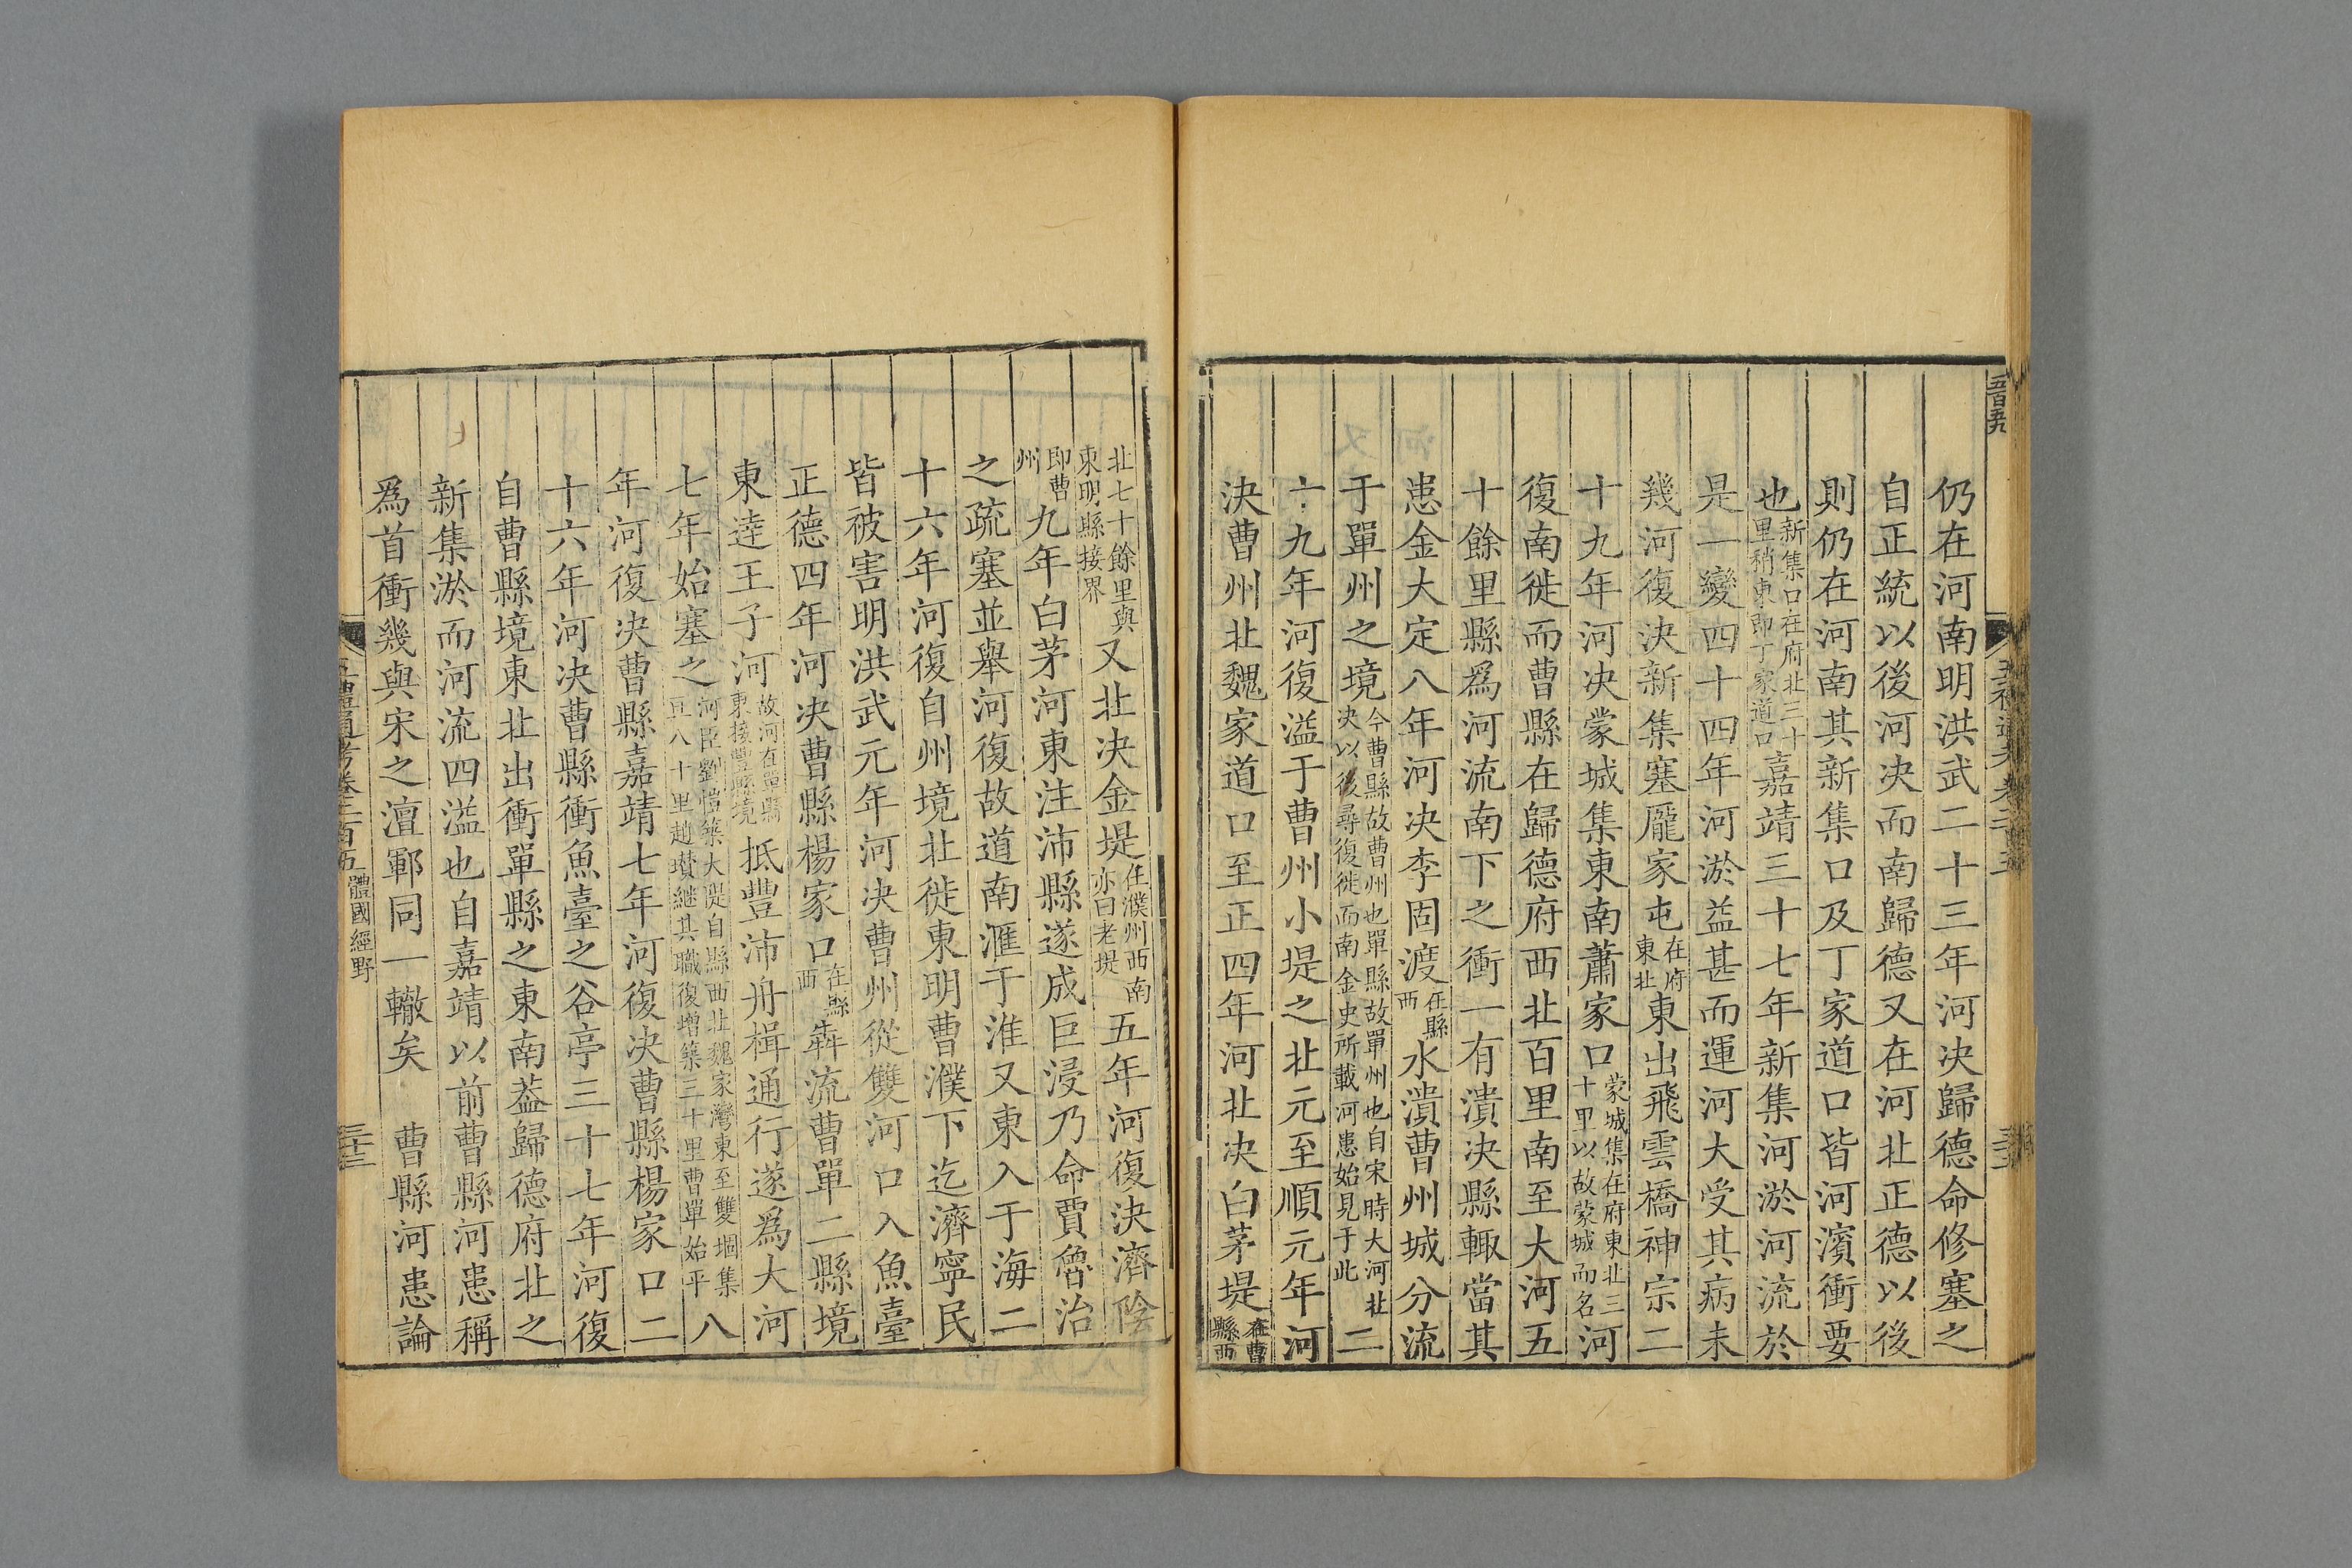 五百五九
仍在河南明洪武二十三年河决歸德命修塞之
自正統以後河决而南歸德又在河北正德以後
則仍在河南其新集口及丁家道口皆河濱衝要
也新集口在府北三十里稍東即丁家道口嘉靖三十七年新集河淤河流於
是一變四十四年河淤益甚而運河大受其病未
幾河復決新集塞龎家屯在府東北東出飛雲橋神宗二
十九年河决蒙城集東南蕭家口蒙城集在府東北三十里以故蒙城而名河
復南徙而曹縣在歸德府西北百里南至大河五
十餘里縣爲河流南下之衝一有潰決縣輙當其
患金大定八年河决李固渡在縣西水潰曹州城分流
于單州之境今曹縣故曹州也單縣故單州也自宋時大河北决以後尋復徙而南金史所載河患始見于此二
十九年河復溢于曹州小堤之北元至順元年河
決曹州北魏家道口至正四年河北决白茅堤在曹縣西
北七十餘里與東明縣接界又北决金堤在濮州西南亦曰老堤五年河復決濟陰
即曹州九年白茅河東注沛縣遂成巨浸乃命賈魯治
之疏塞並舉河復故道南滙于淮又東入于海二
十六年河復自州境北徙東明曹濮下迄濟寧民
皆被害明洪武元年河决曹州從雙河口入魚臺
正德四年河决曹縣楊家口在縣西犇流曹單二縣境
東逹王子河故河在單縣東接豐縣境抵豐沛舟楫通行遂爲大河
七年始塞之河臣劉愷築大堤自縣西北魏家灣東至雙堌集亘八十里趙璜継其職復增築三十里曹單始平八
年河復决曹縣嘉靖七年河復决曹縣楊家口二
十六年河决曹縣衝魚臺之谷亭三十七年河復
自曹縣境東北出衝單縣之東南葢歸德府北之
新集淤而河流四溢也自嘉靖以前曹縣河患稱
爲首衝幾與宋之澶鄆同一轍矣　曹縣河患論
五禮通考卷二百五　體國經野
三十三